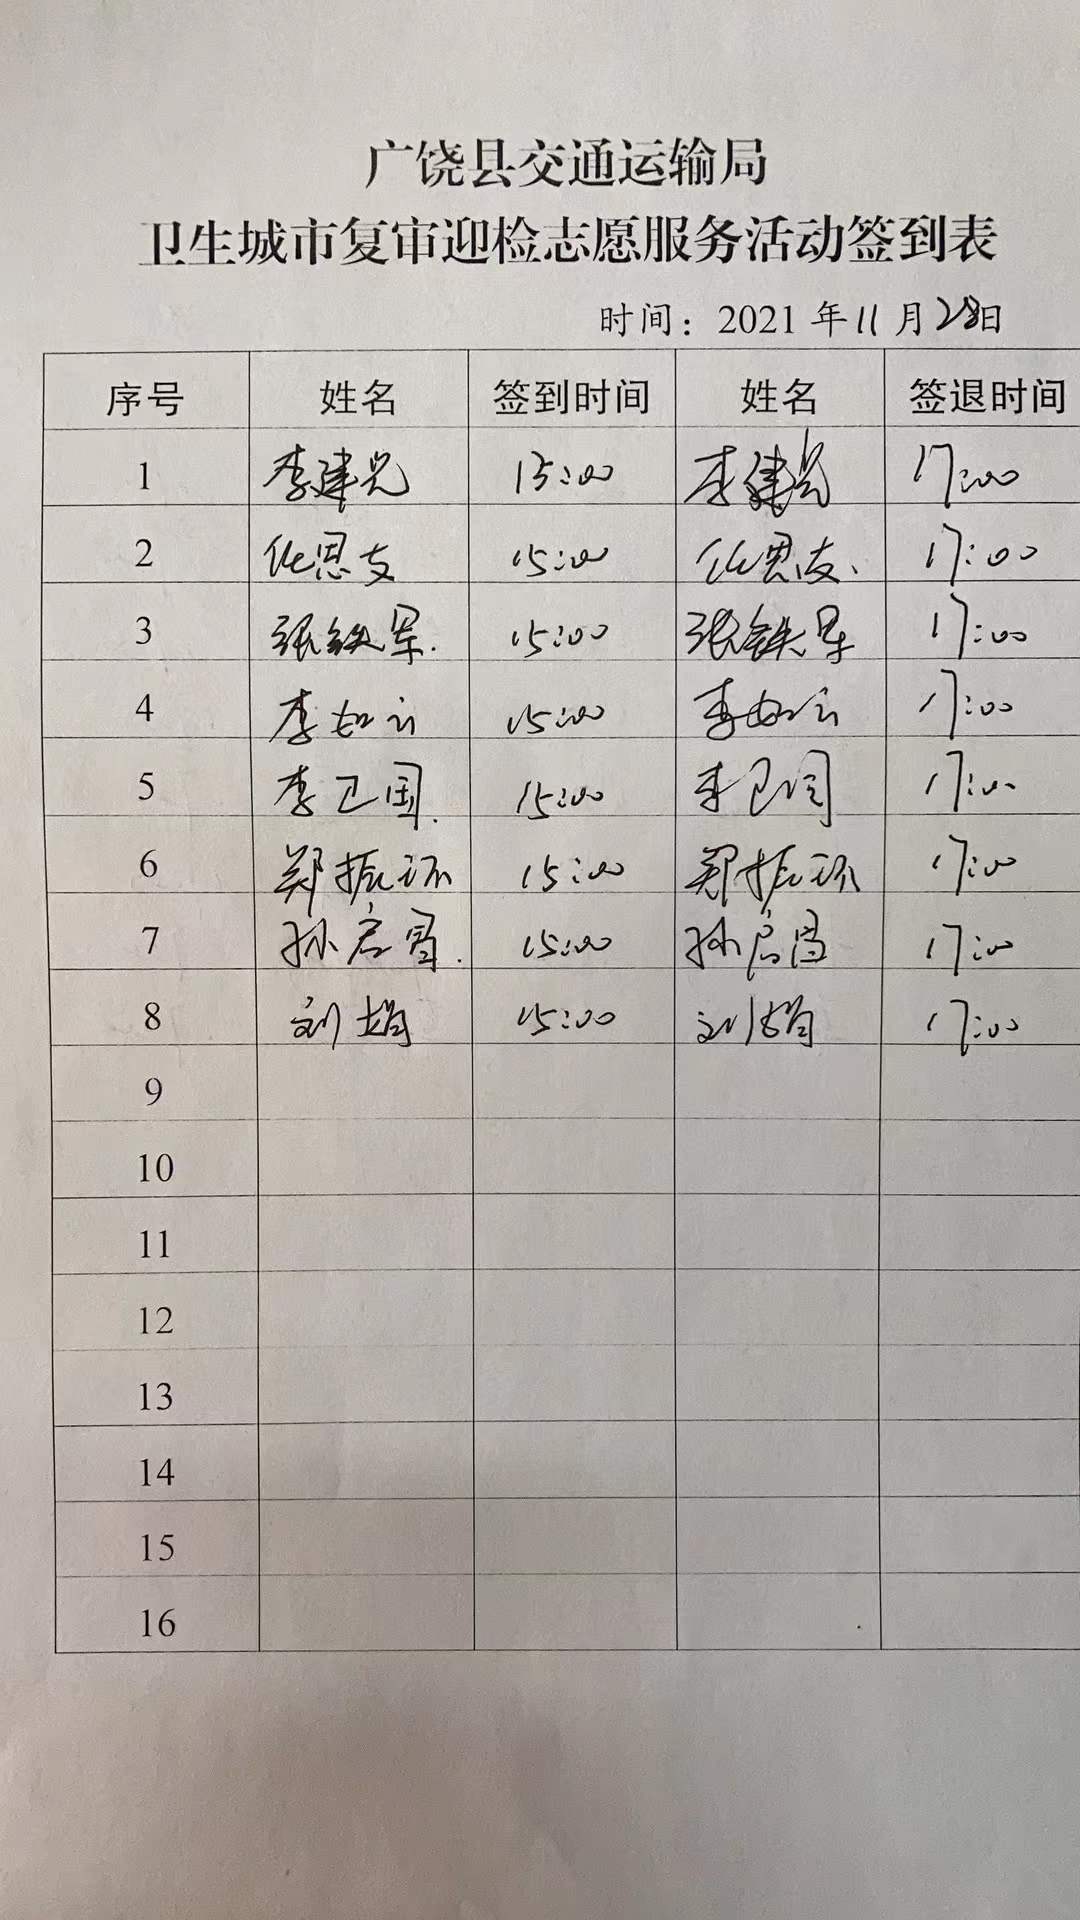 广饶县交通运输局
卫生城市复审迎检志愿服务活动签到表
时间：2021年11月28日
序号 姓名 签到时间 姓名 签退时间
1 李建光 15:00 李建光 17:00
2 15:00 17:00
3 张铁军 15:00 张铁军 17:00
4 李如云 15:00 李如云 17:00
5 李卫国 15:00 李卫国 17:00
6 郑振环 15:00 郑振环 17:00
7 孙启昌 15:00 孙启昌 17:00
8 刘娟 15:00 刘娟 17:00
9
10
11
12
13
14
15
16